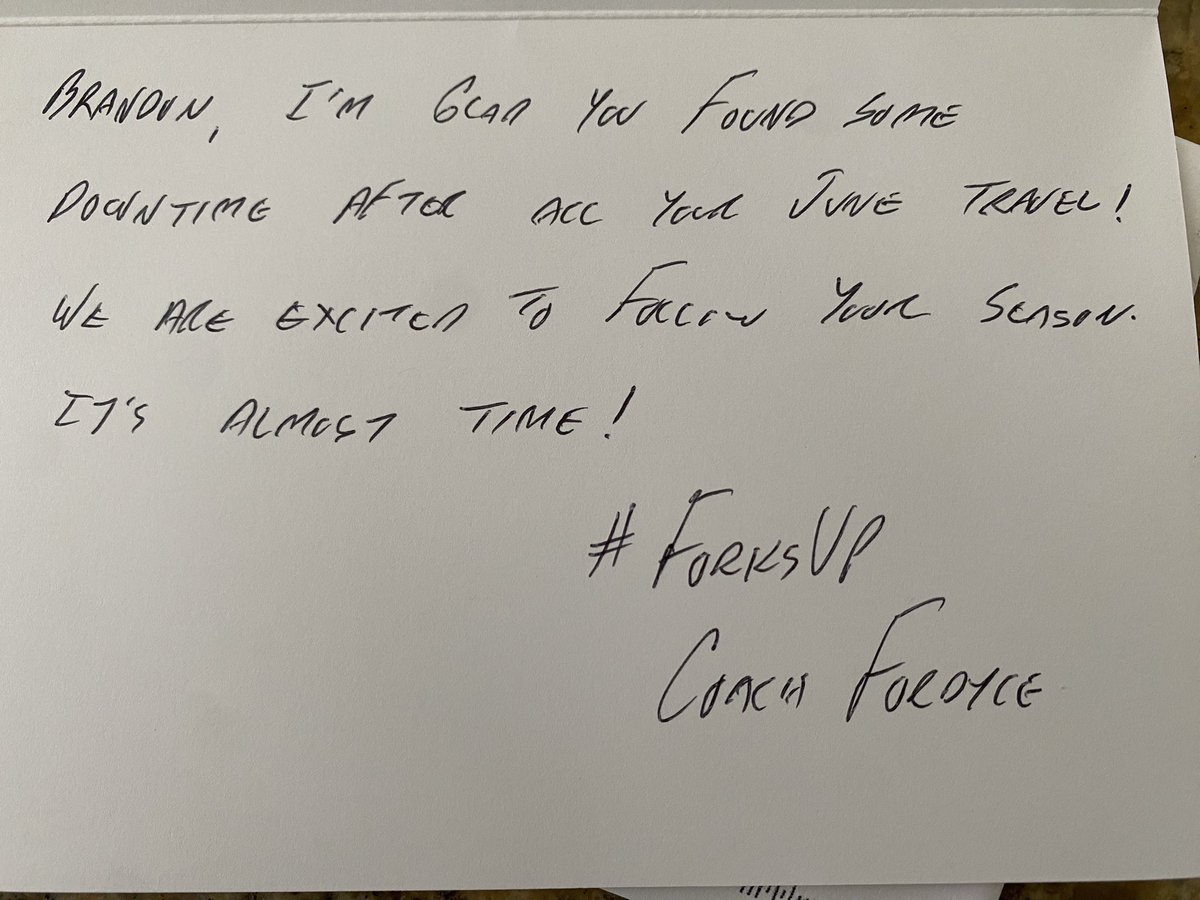 BRANDON, I'M GLAD YOU FOUND SOME
DOWNTIME AFTER ALL YOUR JUNE TRAVEL!
WE ARE EXCITED TO FOLLOW YOUR SEASON.
IT'S ALMOST TIME!
#FORKSUP
COACH FORDYCE